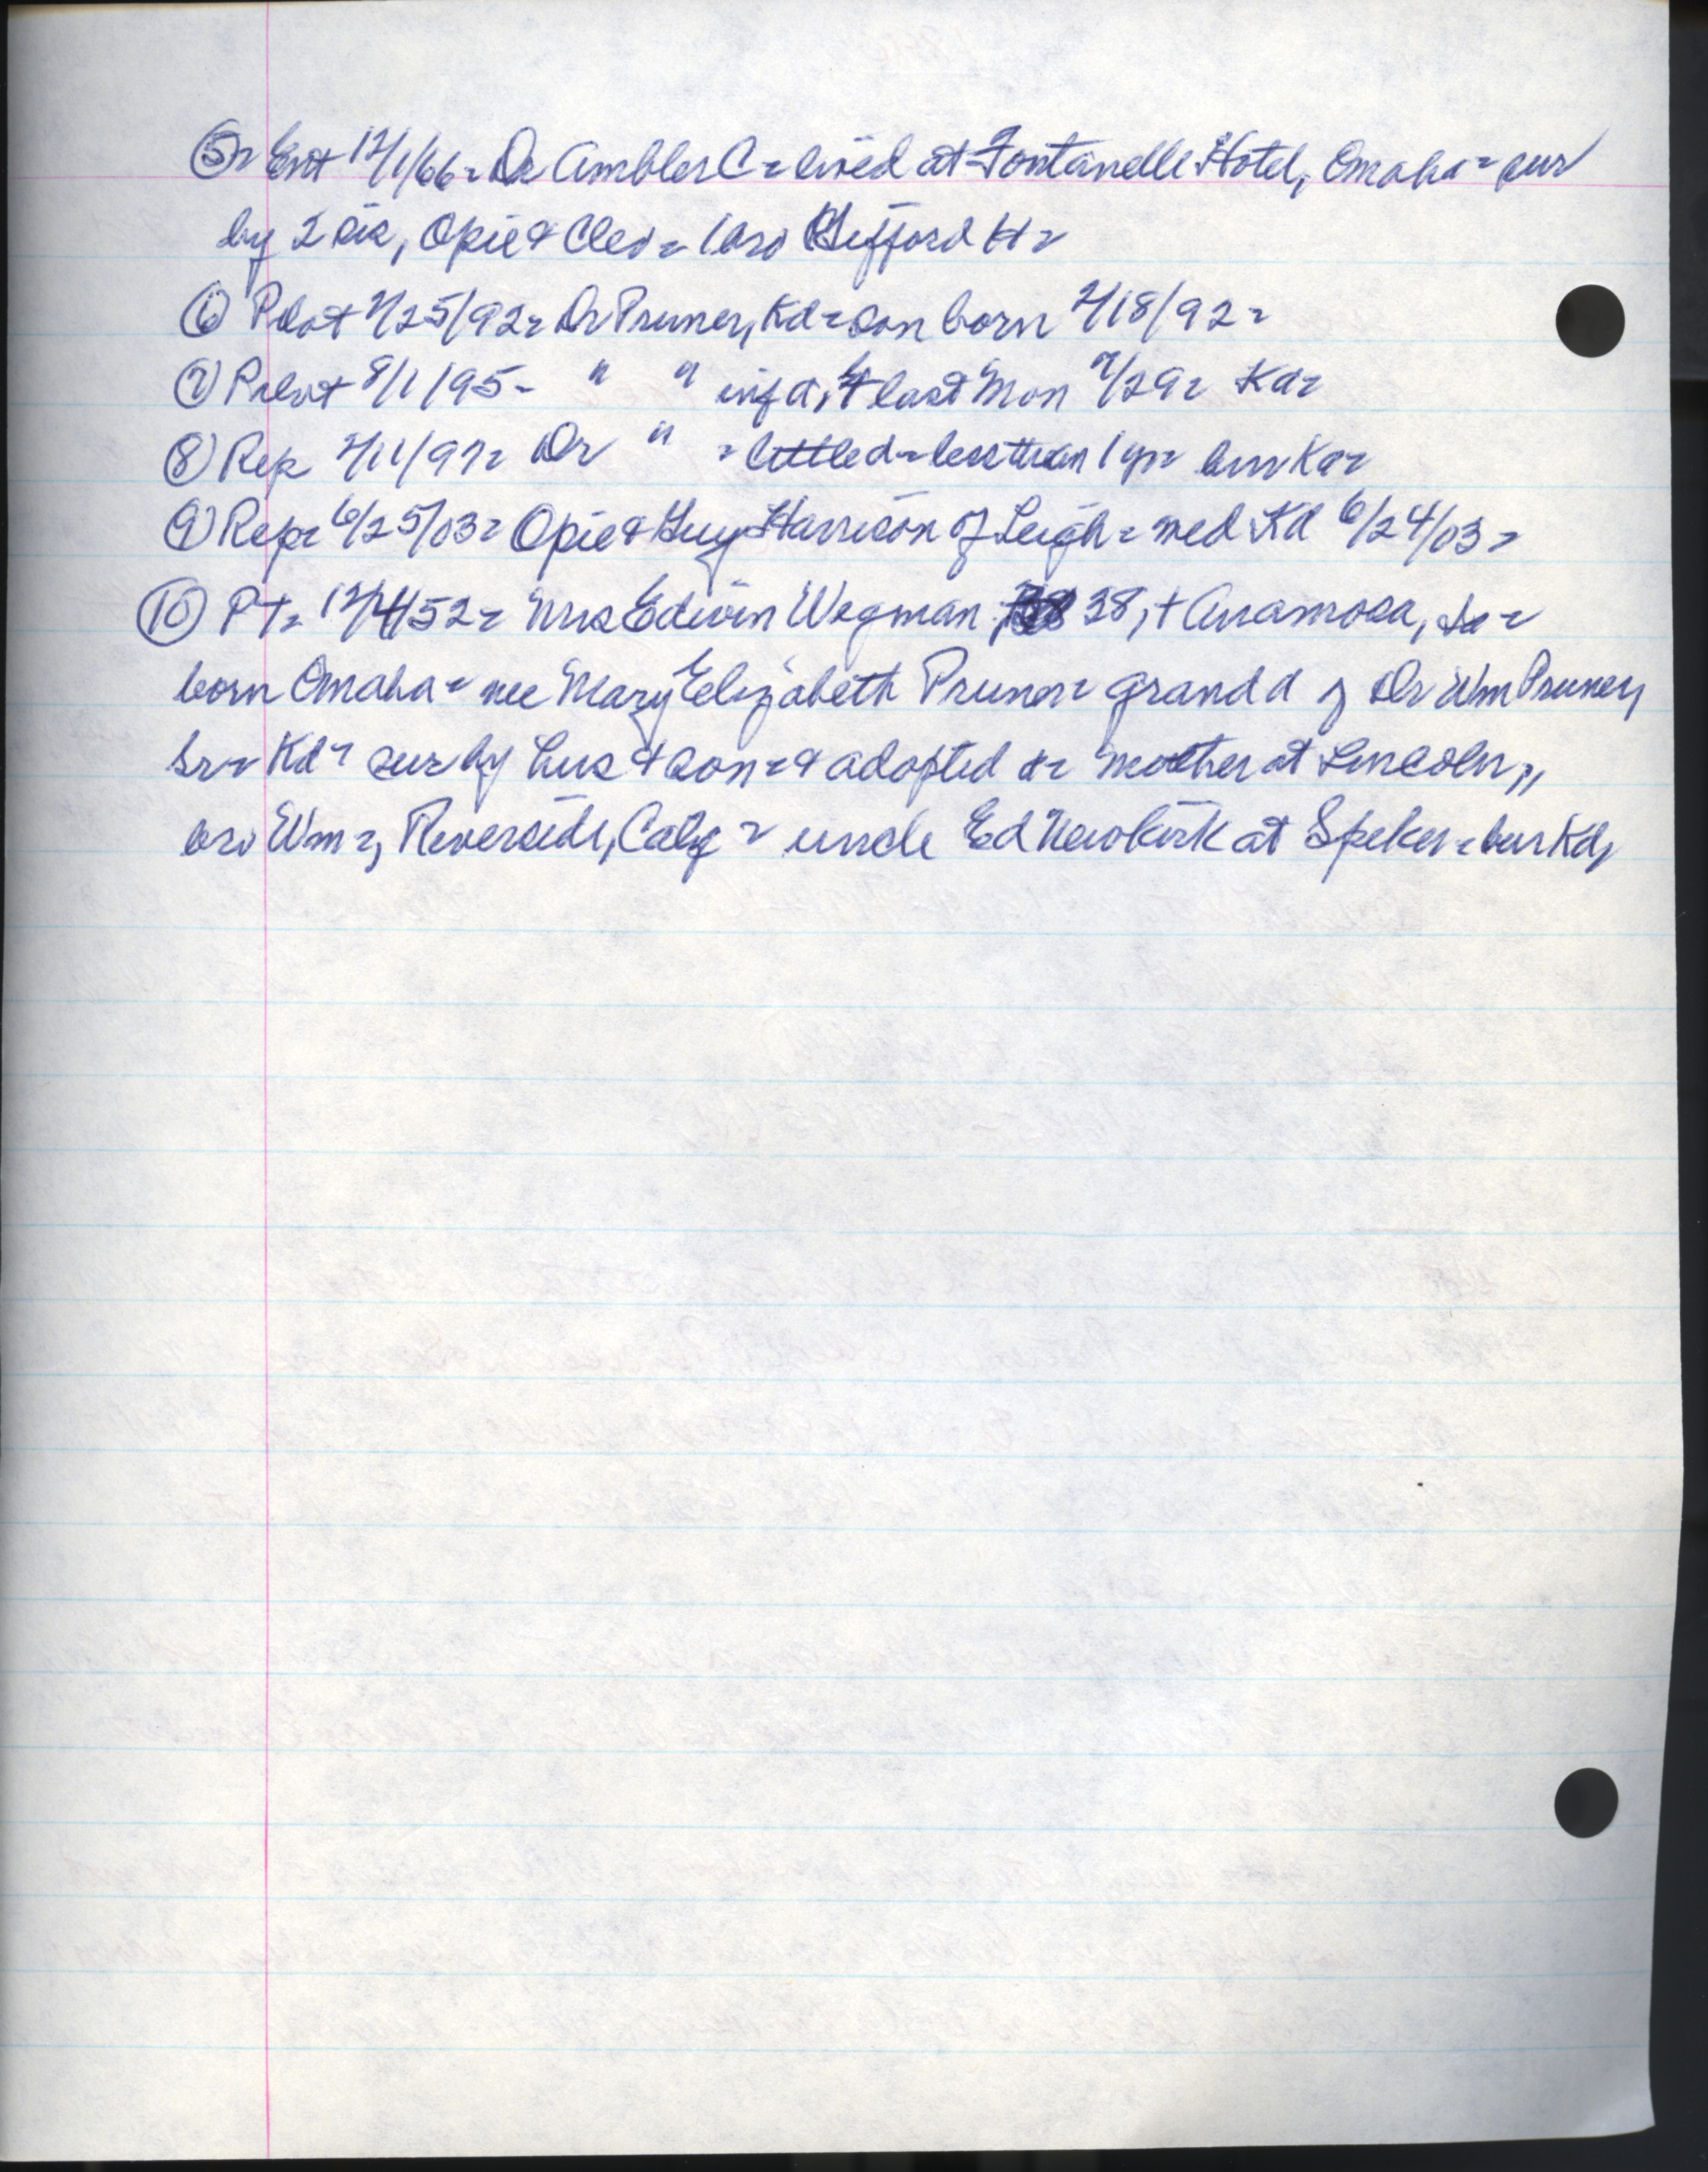 ⑤ Ent 12/1/66 = Dr Ambler C = lived at Fontanelle Hotel, Omaha = sur
by 2 sis, Opie & Cleo = 1 bro Gifford H =
⑥ Pilot 2/25/92 = Dr Pruner, Kd = son born 2/18/92 =
⑦ Pilot 8/1/95 - " " inf d, + last Mon 7/29 = Kd =
⑧ Rep 2/11/97 = Dr " = little d = less than 1 yr = bur Kd =
⑨ Rep = 6/25/03 = Opie & Guy Harrison of Leigh = med Kd 6/24/03 =
⑩ PT = 12/4/52 = Mrs Edwin Wegman, 38, + Anamosa, Ia =
born Omaha = nee Mary Elizabeth Pruner = grand d of Dr Wm Pruner,
Sr = Kd = sur by hus & son = & adopted d = mother at Lincoln,
bro Wm =, Riverside, Calif = uncle Ed Newkirk at Speker = bur Kd,